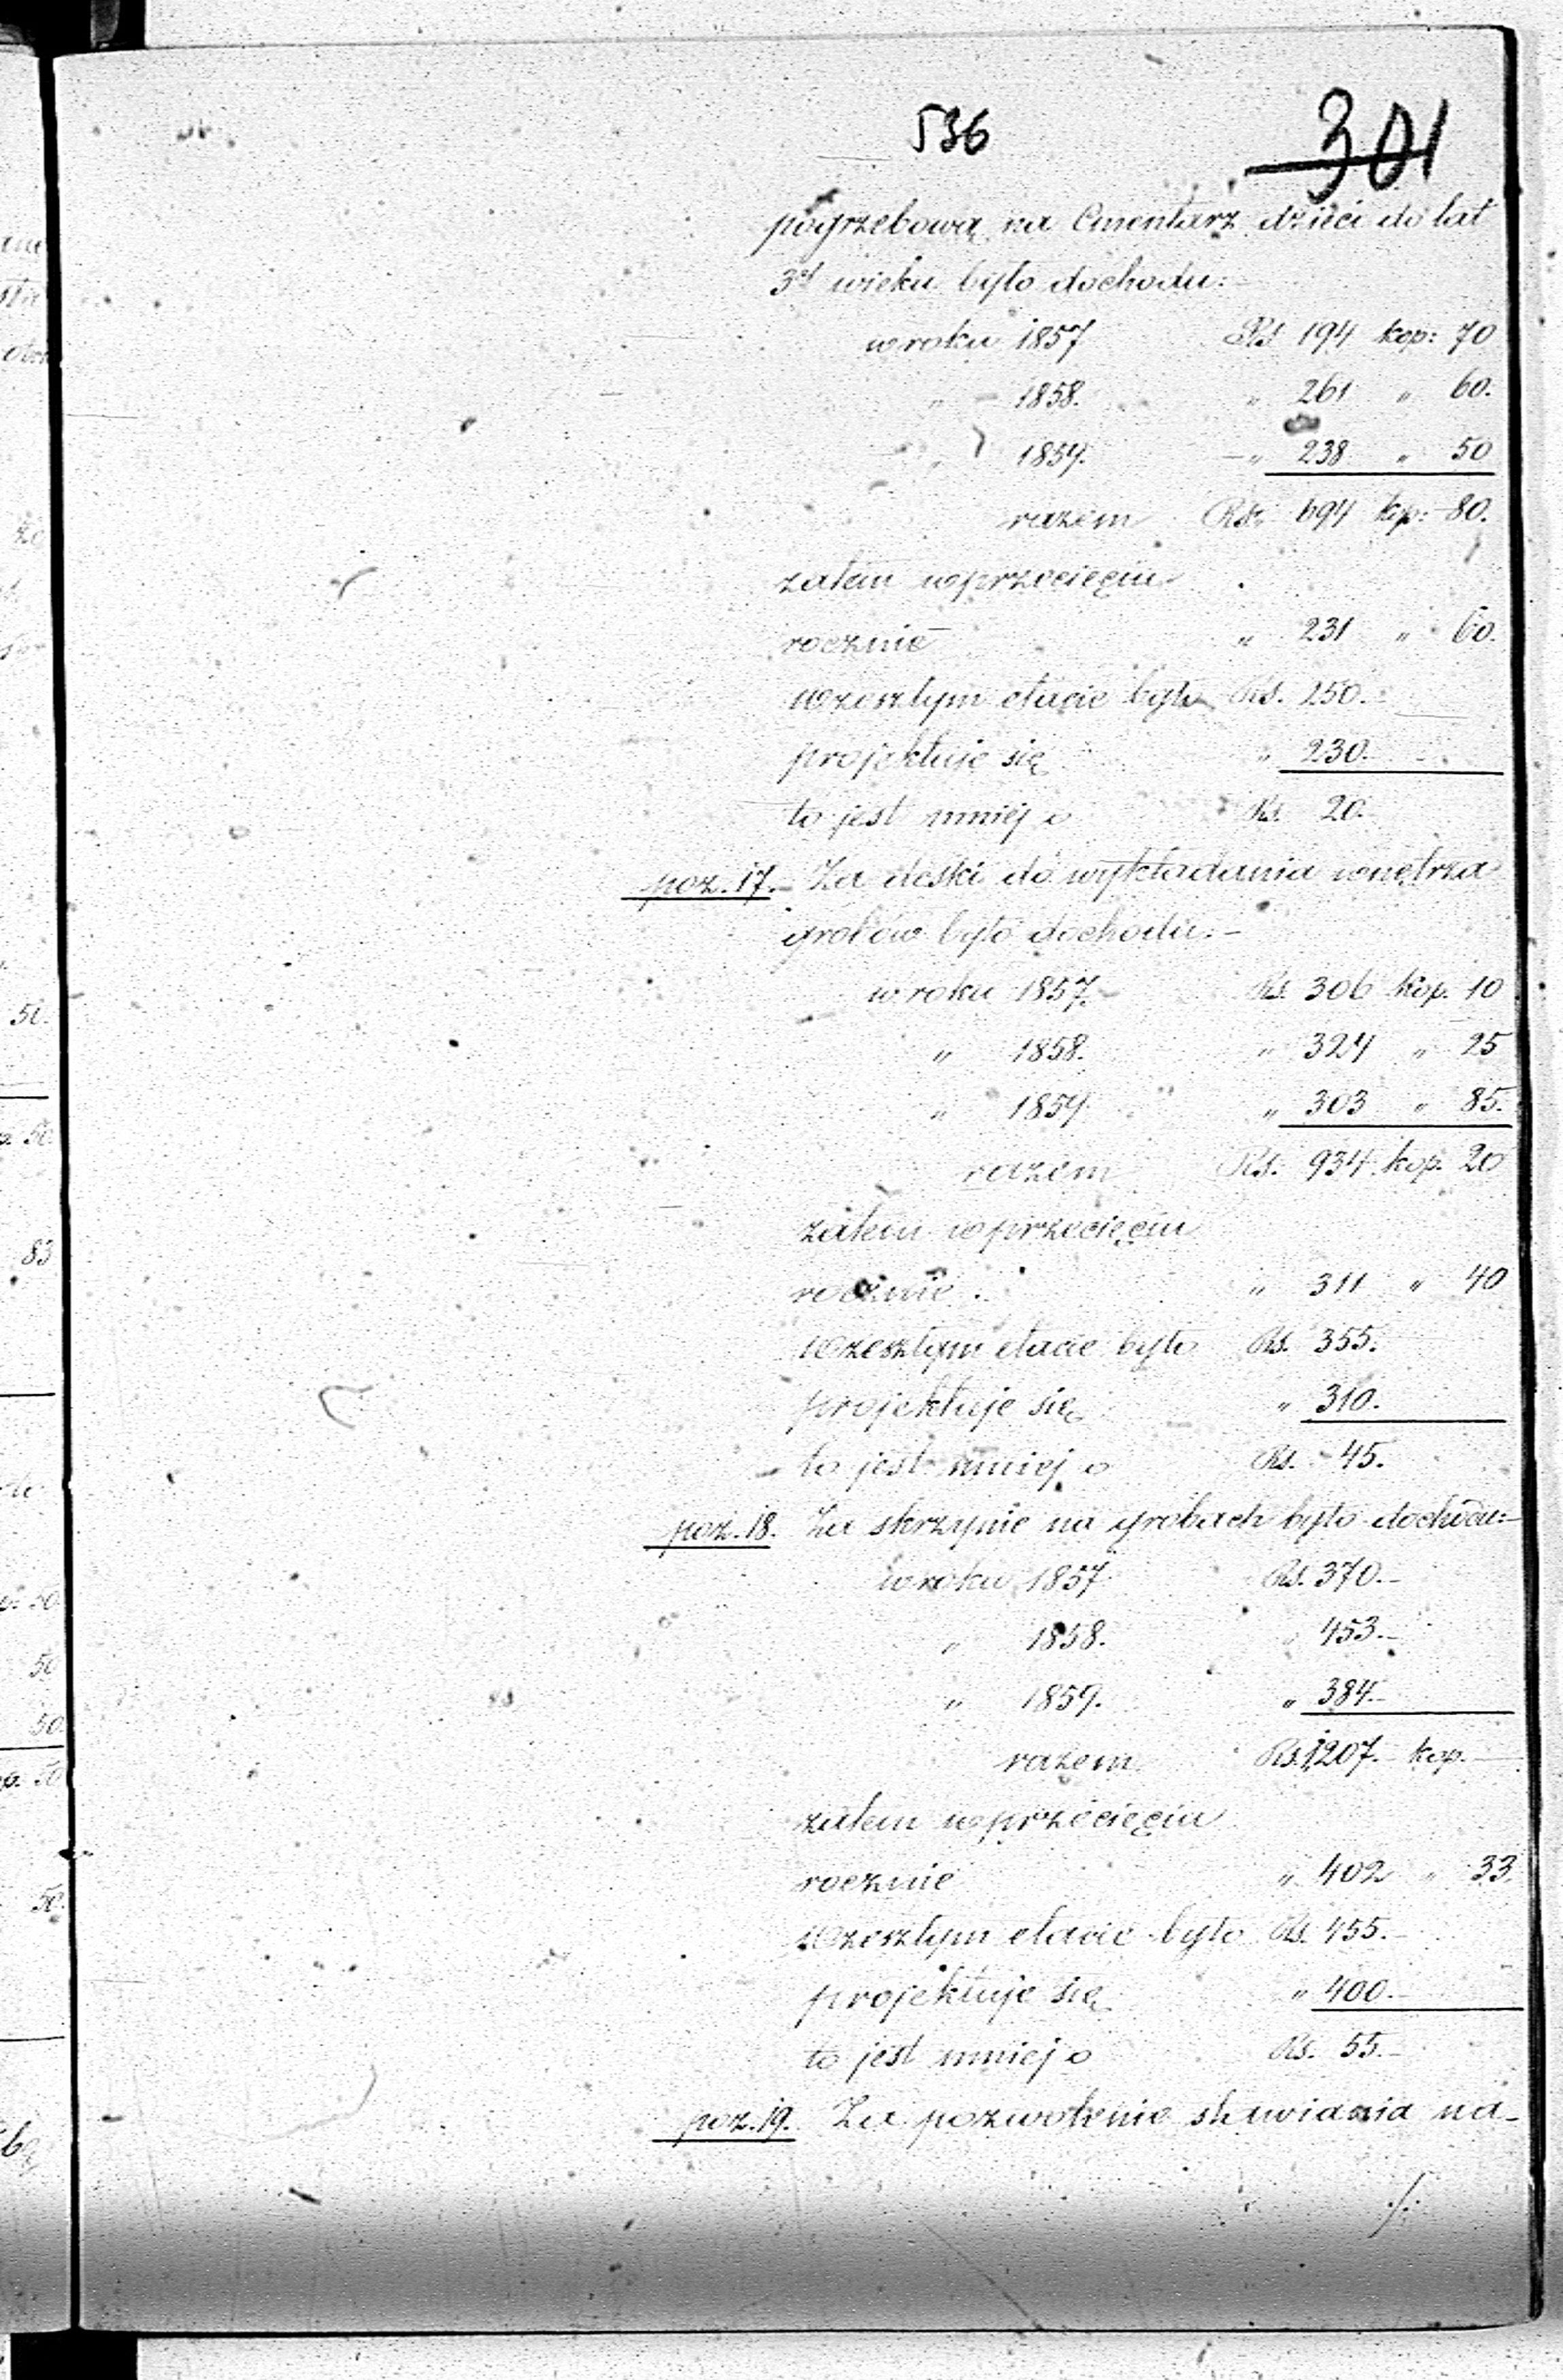 536 301
pogrzebową na Cmentarz dzieci do lat
3ch wieku było dochodu:
w roku 1857 Rs 194 kop: 70
" 1858. " 261 " 60.
" 1859. " 238 " 50
razem Rs. 694 kop: 80.
zatem w przecięciu
rocznie " 231 " 60.
W zeszłym etacie było Rs. 250.
projektuje się " 230.
to jest mniej o Rs. 20.
poz. 17. Za deski do wykładania wnętrza
grobów było dochodu:
w roku 1857. Rs. 306 kop. 10
" 1858. " 324 " 25
" 1859 " 303 " 85.
razem Rs. 934 kop. 20
zatem w przecięciu
rocznie " 311 " 40
W zeszłym etacie było Rs. 355.
projektuje się " 310.
to jest mniej o Rs. 45.
poz. 18. Za skrzynie na grobach było dochodu:
w roku 1857 Rs. 370.
" 1858. " 453.
" 1859. " 384
razem Rs. 1207. kop.
zatem w przecięciu
rocznie " 402 " 33.
W zeszłym etacie było Rs. 455.
projektuje się " 400.
to jest mniej o Rs. 55.
poz. 19. Za pozwolenie stawiania na-
./.